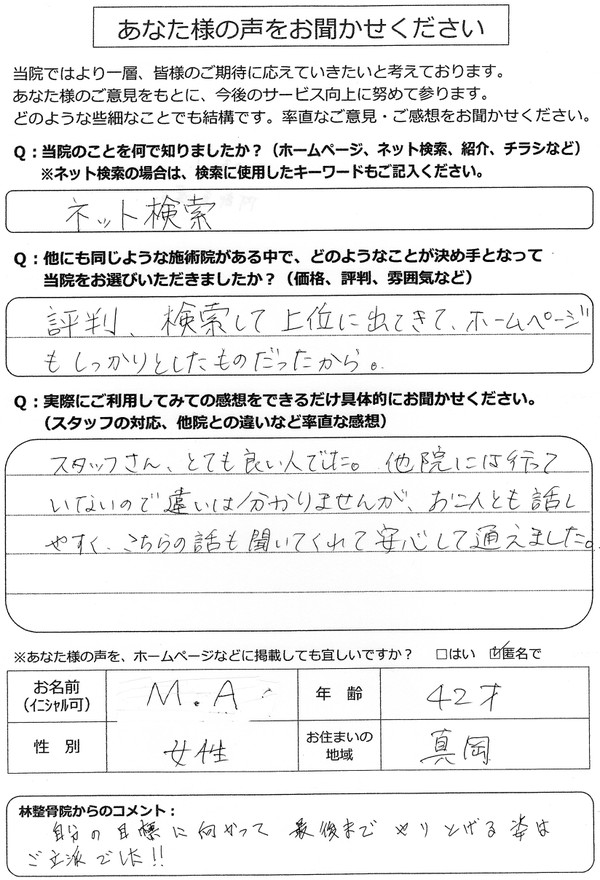 あなた様の声をお聞かせください
当院ではより一層、皆様のご期待に応えていきたいと考えております。
あなた様のご意見をもとに、今後のサービス向上に努めて参ります。
どのような些細なことでも結構です。率直なご意見・ご感想をお聞かせください。
Q：当院のことを何で知りましたか？（ホームページ、ネット検索、紹介、チラシなど）
※ネット検索の場合は、検索に使用したキーワードもご記入ください。
ネット検索
Q：他にも同じような施術院がある中で、どのようなことが決め手となって
当院をお選びいただきましたか？（価格、評判、雰囲気など）
評判、検索して上位に出てきて、ホームページ
もしっかりとしたものだったから。
Q：実際にご利用してみての感想をできるだけ具体的にお聞かせください。
（スタッフの対応、他院との違いなど率直な感想）
スタッフさん、とても良い人でした。他院には行って
いないので違いは分かりませんが、お二人とも話し
やすく、こちらの話も聞いてくれて安心して通えました。
※あなた様の声を、ホームページなどに掲載しても宜しいですか？ □はい ☑匿名で
お名前 M.A 年齢 42才
（ｲﾆｼｬﾙ可）
性別 女性 お住まいの 真岡
地域
林整骨院からのコメント：
自分の目標に向かって最後までやりとげる姿は
ご立派でした!!